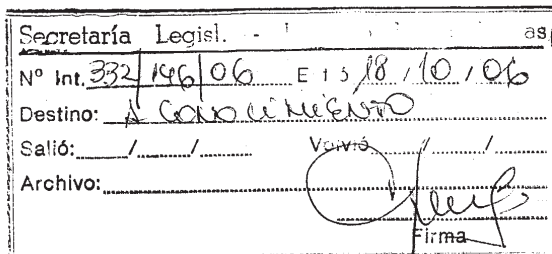 Secretaría Legisl. -
Nº Int. 332/146/06 E t s 18/10/06
Destino: A CONOCIMIENTO
Salió: / / Volvió / /
Archivo:
Firma